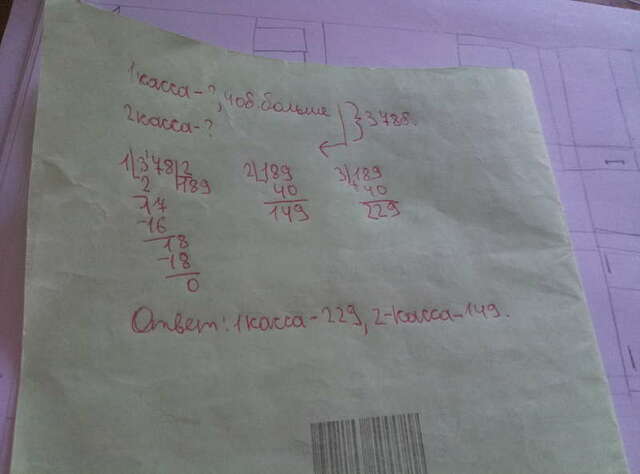 1 касса - ?, 40б. больше
2 касса - ? } 378б.
1) 378 | 2
2 189
17
-16
18
-18
0
2) 189
40
149
3) 189
+40
229
Ответ: 1 касса - 229, 2-касса - 149.